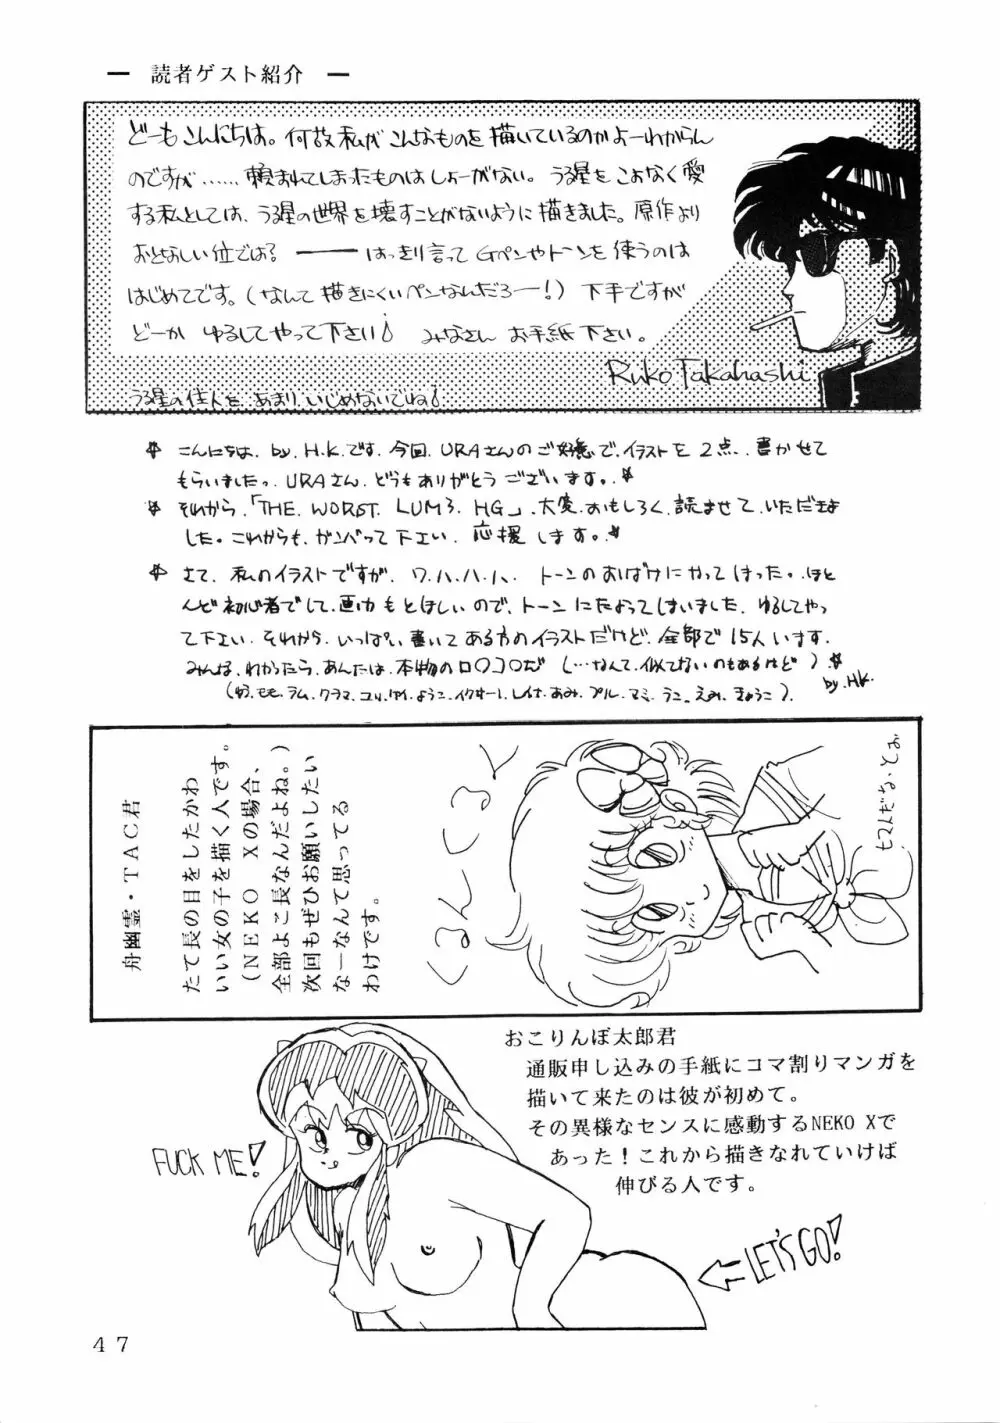 ― 読者ゲスト紹介 ―
どーもこんにちは。何故私がこんなものを描いているのかよーわからん
のですが……頼まれてしまったものはしょーがない。うる星をこよなく愛
する私としては、うる星の世界を壊すことがないように描きました。原作より
おとなしい位では? ――はっきり言ってGペンやトーンを使うのは
はじめてです。(なんて描きにくいペンなんだろー!) 下手ですが
どーか ゆるしてやって下さい♪ みなさん お手紙下さい。
Ruko Takahashi
うる星の住人を あまり いじめないでね♪
☆ こんにちは、by.H.K.です。今回、URAさんのご好意で、イラストを2点、書かせて
もらいましたっ。URAさん、どうもありがとうございます。☆
☆ それから、「THE WORST LUM3. HG」、大変、おもしろく、読ませて、いただきま
した。これからも、ガンバって下さい、応援します。☆
☆ さて、私のイラストですが、ワ、ハ、ハ、ハ、トーンのおばけにやってしまった。ほと
んど初心者でして、画力もとぼしいので、トーンにたよってしまいました、ゆるしてやっ
て下さい、それから、いっぱい、書いてある方のイラストだけど、全部で15人います。
みんな、わかったら、あんたは、本物のロ〇コ〇だ (…なんて、似てないのもあるけど)☆
by.H.K.
モモ、ラム、クラマ、ユリ、ようこ、
あみ、プル、マミ、うこ、えみ、きょうこ)、
舟幽霊・TAC君
たて長の目をしたかわ
いい女の子を描く人です。
(NEKO Xの場合、
全部よこ長なんだよね。)
次回もぜひお願いしたい
なーなんて思ってる
わけです。
くるんくるんっ
もてんだな、とお
おこりんぼ太郎君
通販申し込みの手紙にコマ割りマンガを
描いて来たのは彼が初めて。
その異様なセンスに感動するNEKO Xで
あった!これから描きなれていけば
伸びる人です。
FUCK ME!
LET'S GO!
47